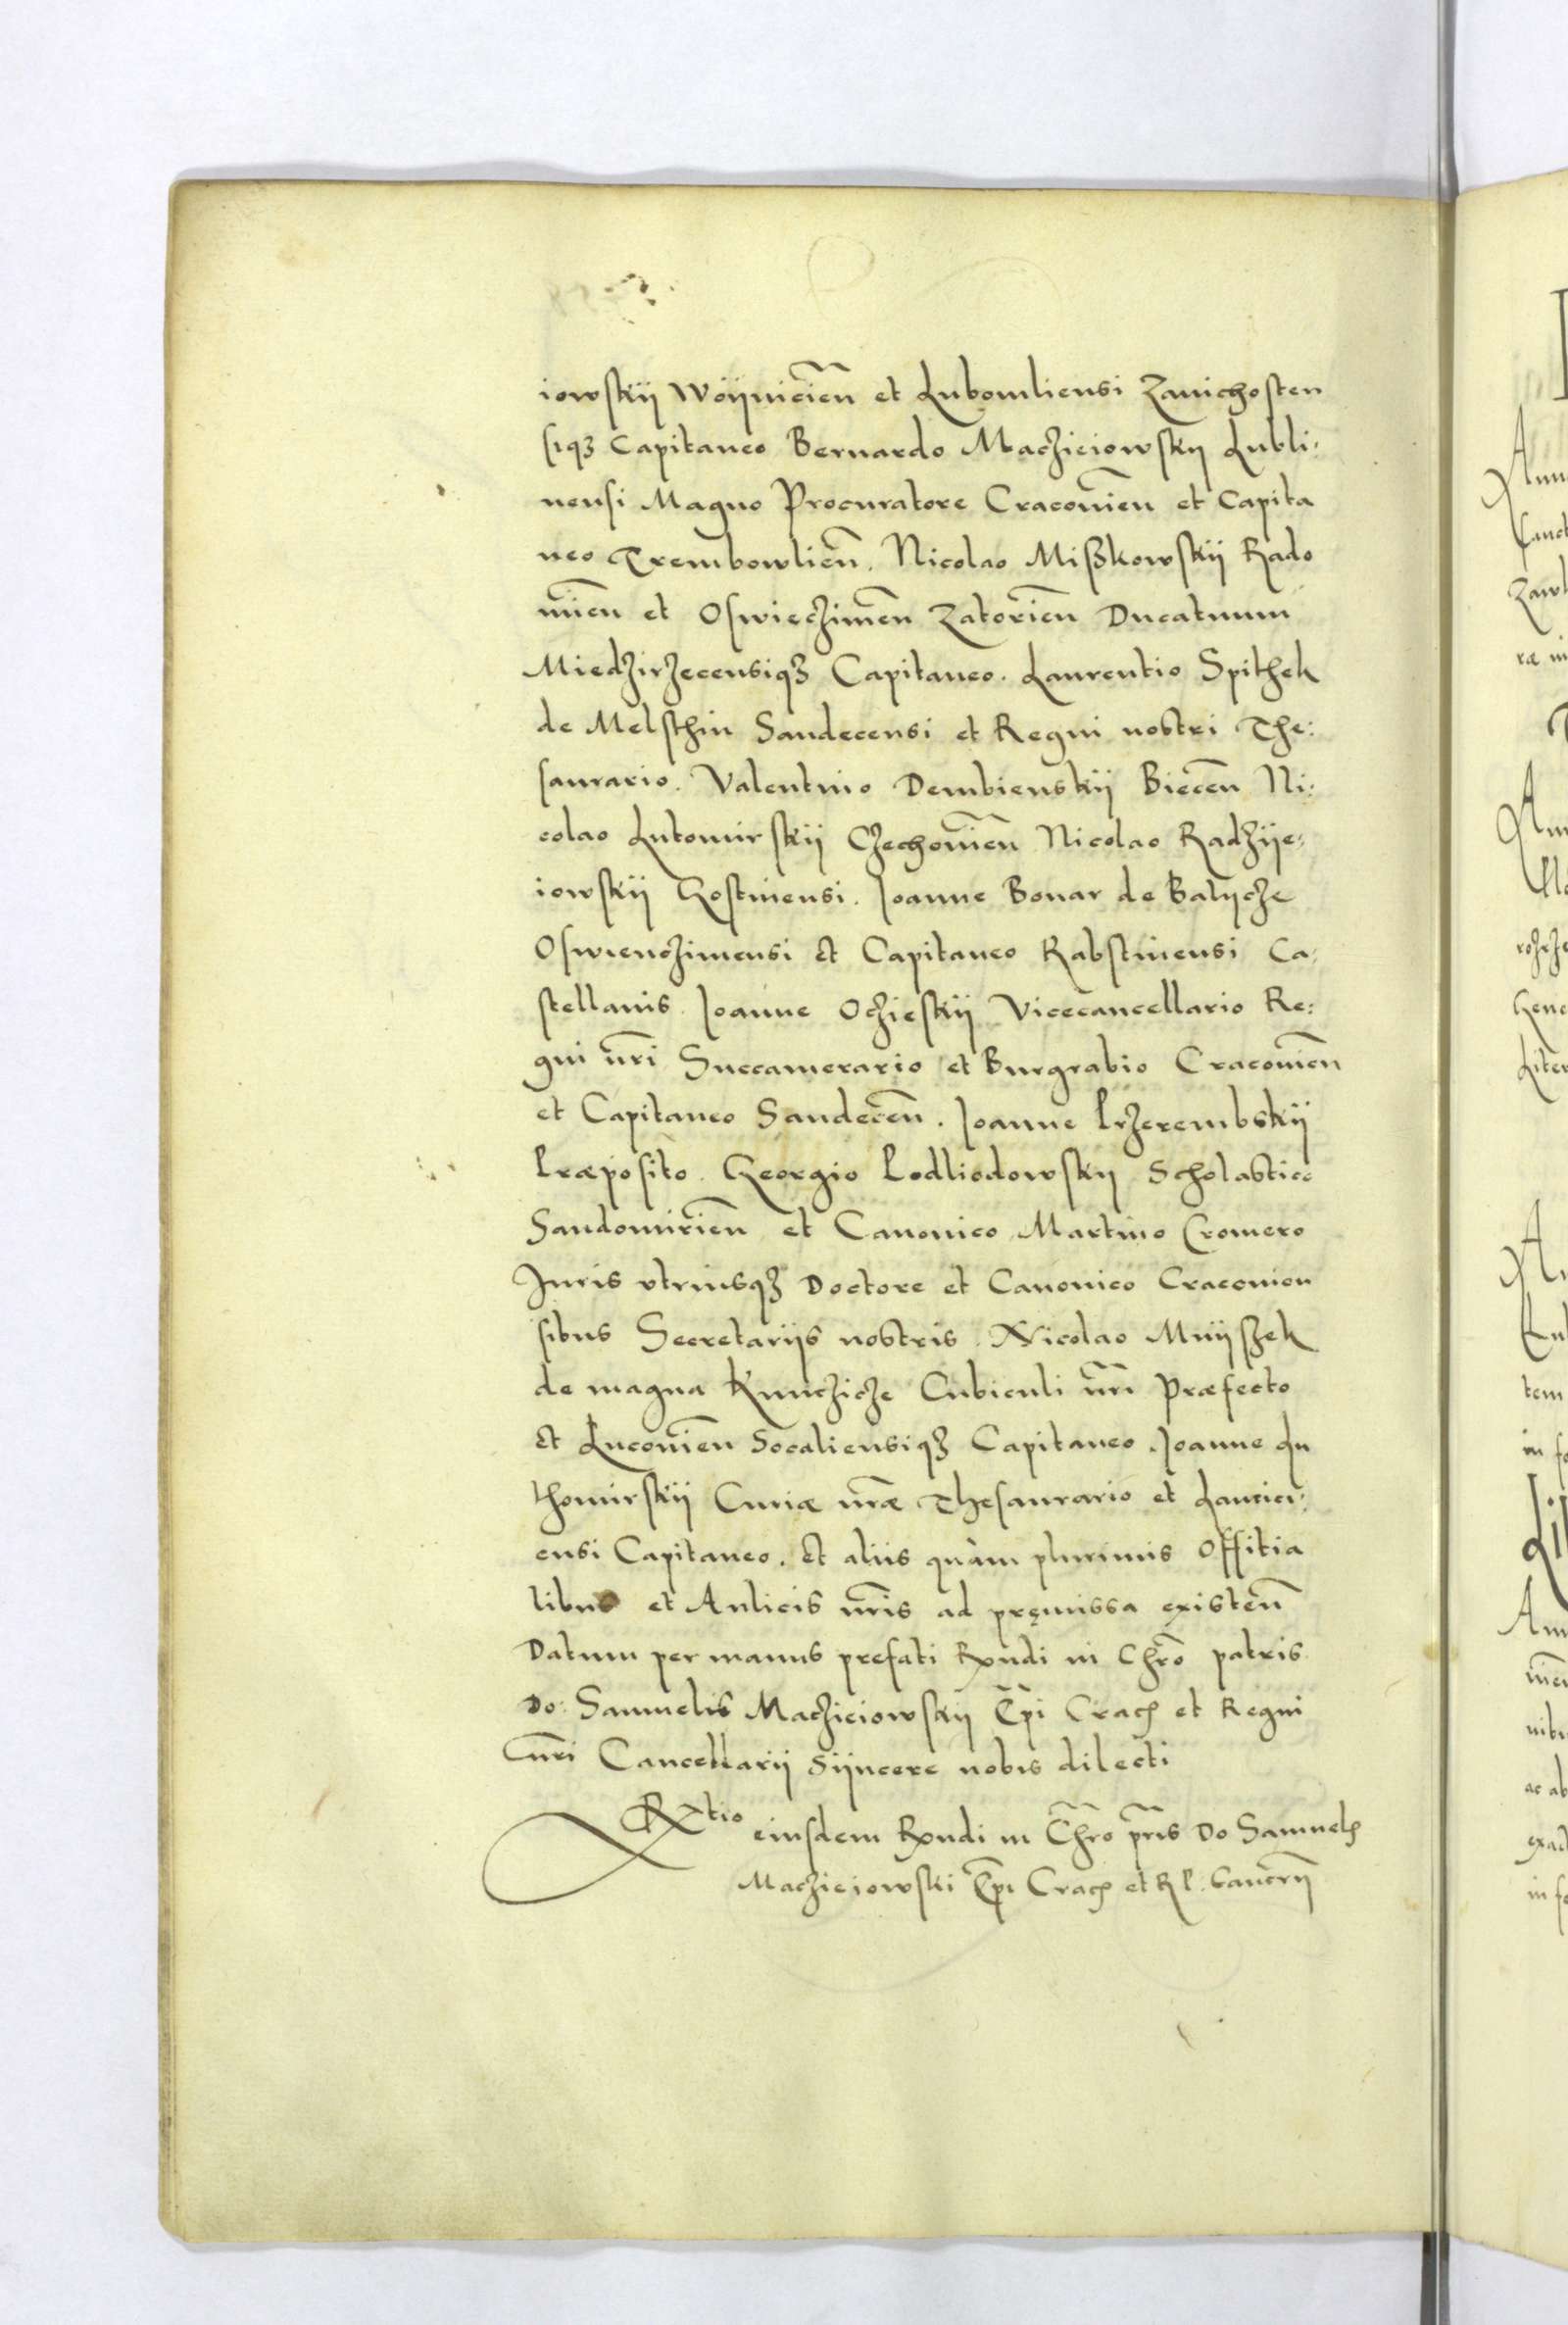 iowskÿ Woÿnicien̄ et Lubomliensi Zavichosten
siqȝ Capitaneo Bernardo Macziciowskÿ Lubli:
nensi Magno Procuratore Cracovien̄ et Capita
neo Trembowlien̄. Nicolao Mißkowskÿ Rado
mien̄ et Oswieczimen̄ Zatorien̄ Ducatuum
Miedzirzecensiqȝ Capitaneo. Laurentio Spithek
de Melsthin Sandecensi et Regni nostri The:
saurario. Valentino Dembienskÿ Biecen̄ Ni:
colao Lutomirskÿ Czechovien̄ Nicolao Radzÿe:
iowskÿ Gostinensi. Joanne Bonar de Balycze
Oswienczimensi et Capitaneo Rabstinensi Ca:
stellanis. Joanne Oczieskÿ Vicecancellario Re:
gni nr̄i Succamerario et Burgrabio Cracovien̄
et Capitaneo Sandecen̄. Joanne Przerembskÿ
Præposito. Georgio Podliodowskÿ Scholastico
Sandomirien̄ et Canonico Martino Cromero
Juris vtriusqȝ Doctore et Canonico Cracovien
sibus Secretariÿs nostris. Nicolao Mnÿszek
de magna Kunczicze Cubiculi nr̄i Præfecto
et Lucovien̄ Socaliensiqȝ Capitaneo. Joanne Lu
thomirskÿ Curiæ nr̄æ Thesaurario et Lancici:
ensi Capitaneo. et aliis quàm plurimis Offitia
libus et Aulicis nr̄is ad pręmissa existen̄
Datum per manus prefati Rxndi in Chr̄o patris
Do: Samuelis Macziciowskÿ Ep̄i Crac et Regni
nr̄i Cancellarÿ Sÿncere nobis dilecti
Rtio eiusdem Rxndi in Chr̄o pr̄is Do Samuel
Macziejowski Ep̄i Crac et R P. Cancrÿ